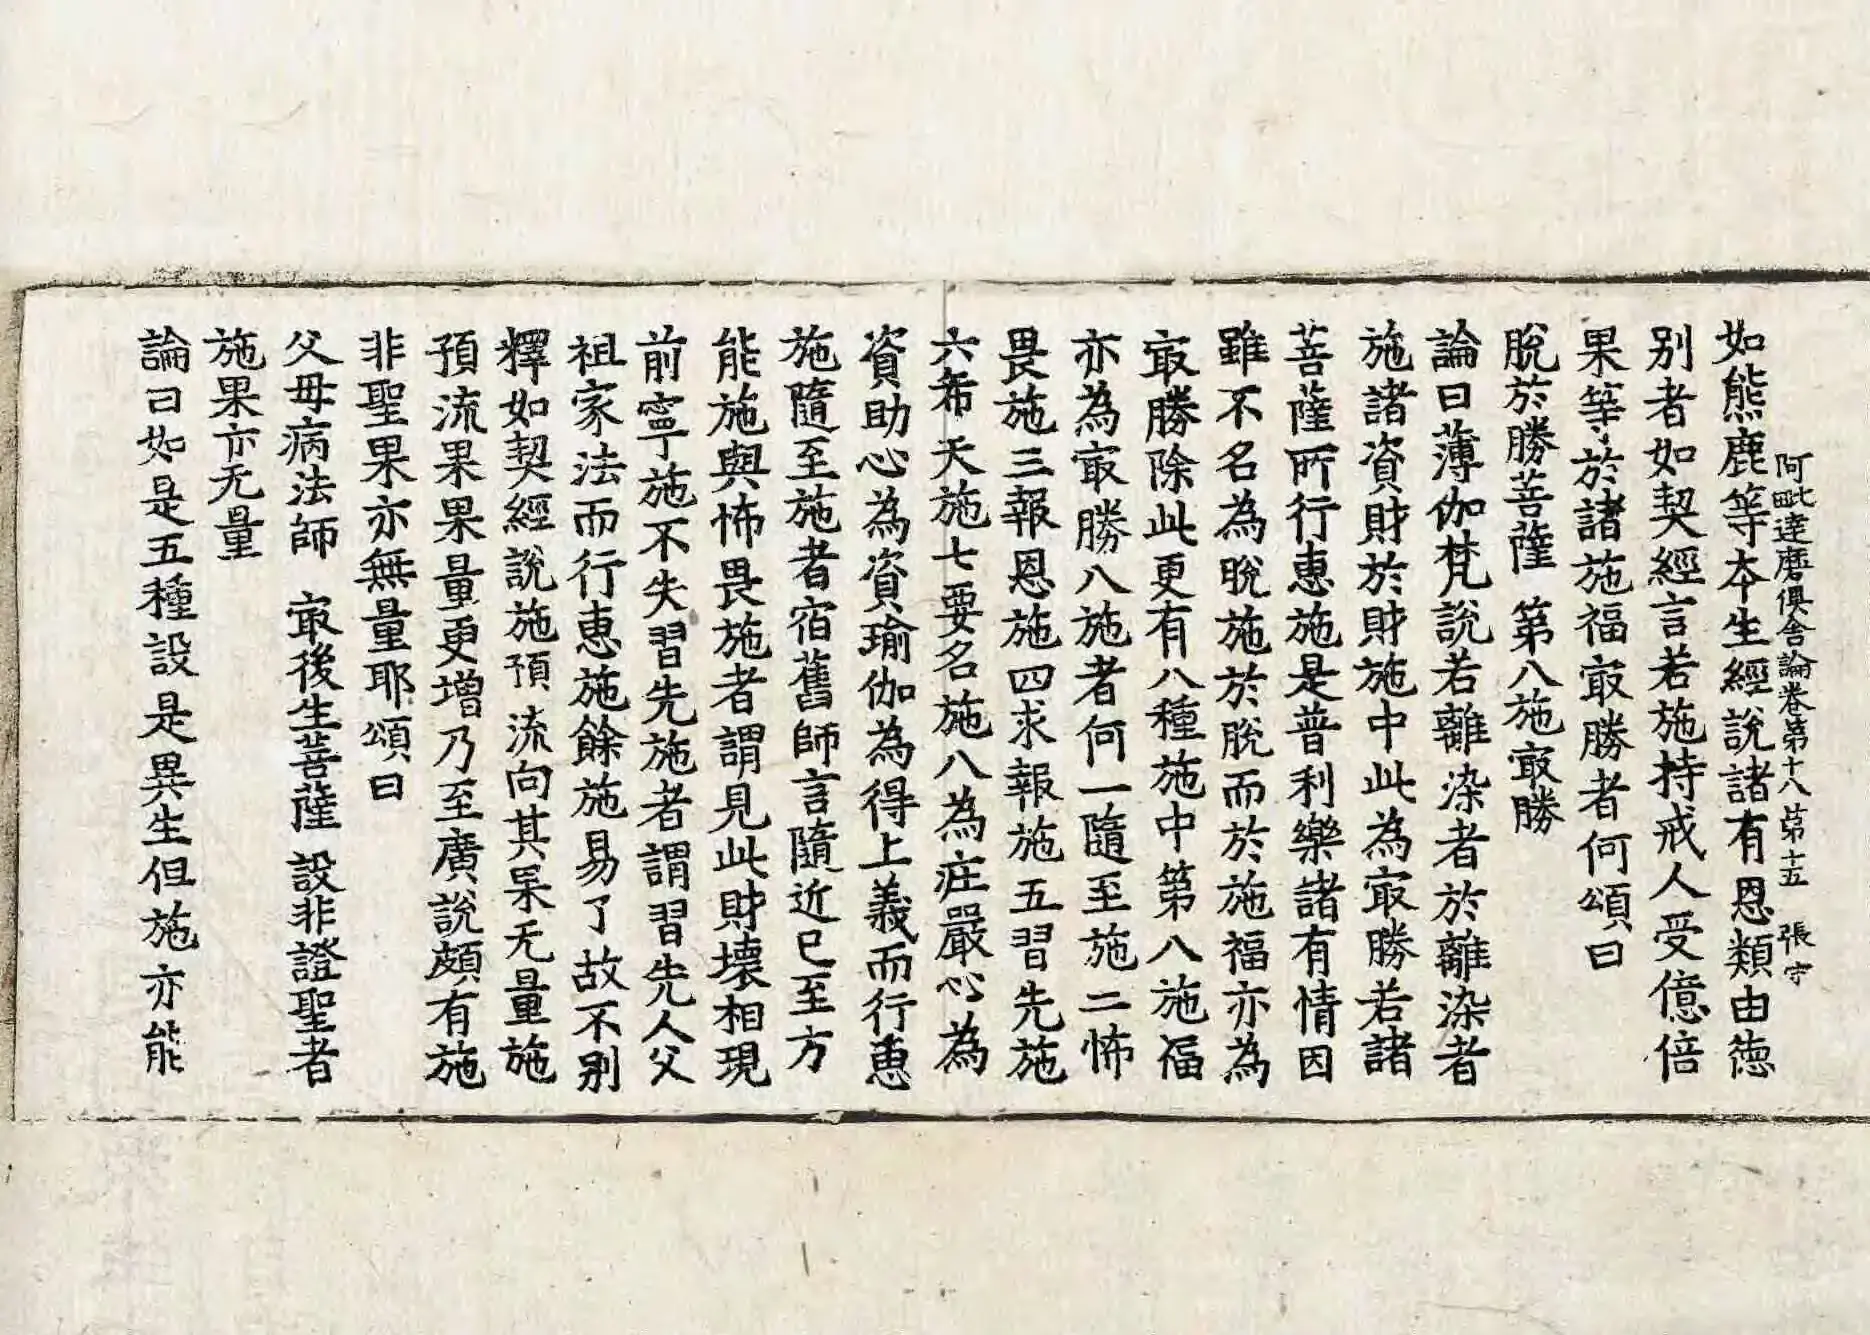 阿毗達磨俱舍論卷第十八 苐十五 張 守
如熊鹿等本生經說諸有恩類由德
别者如契經言若施持戒人受億倍
果等於諸施福㝡勝者何頌曰
脫於勝菩薩 第八施㝡勝
論曰薄伽梵說若離染者於離染者
施諸資財於財施中此為㝡勝若諸
菩薩所行惠施是普利樂諸有情因
雖不名為脫施於脫而於施福亦為
㝡勝除此更有八種施中第八施福
亦為㝡勝八施者何一隨至施二怖
畏施三報恩施四求報施五習先施
六希天施七要名施八為庄嚴心為
資助心為資瑜伽為得上義而行惠
施隨至施者宿舊師言隨近已至方
能施與怖畏施者謂見此財壞相現
前寧施不失習先施者謂習先人父
祖家法而行惠施餘施易了故不别
釋如契經說施預流向其果无量施
預流果果量更增乃至廣說頗有施
非聖果亦無量耶頌曰
父母病法師 㝡後生菩薩 設非證聖者
施果亦无量
論曰如是五種設是異生但施亦能